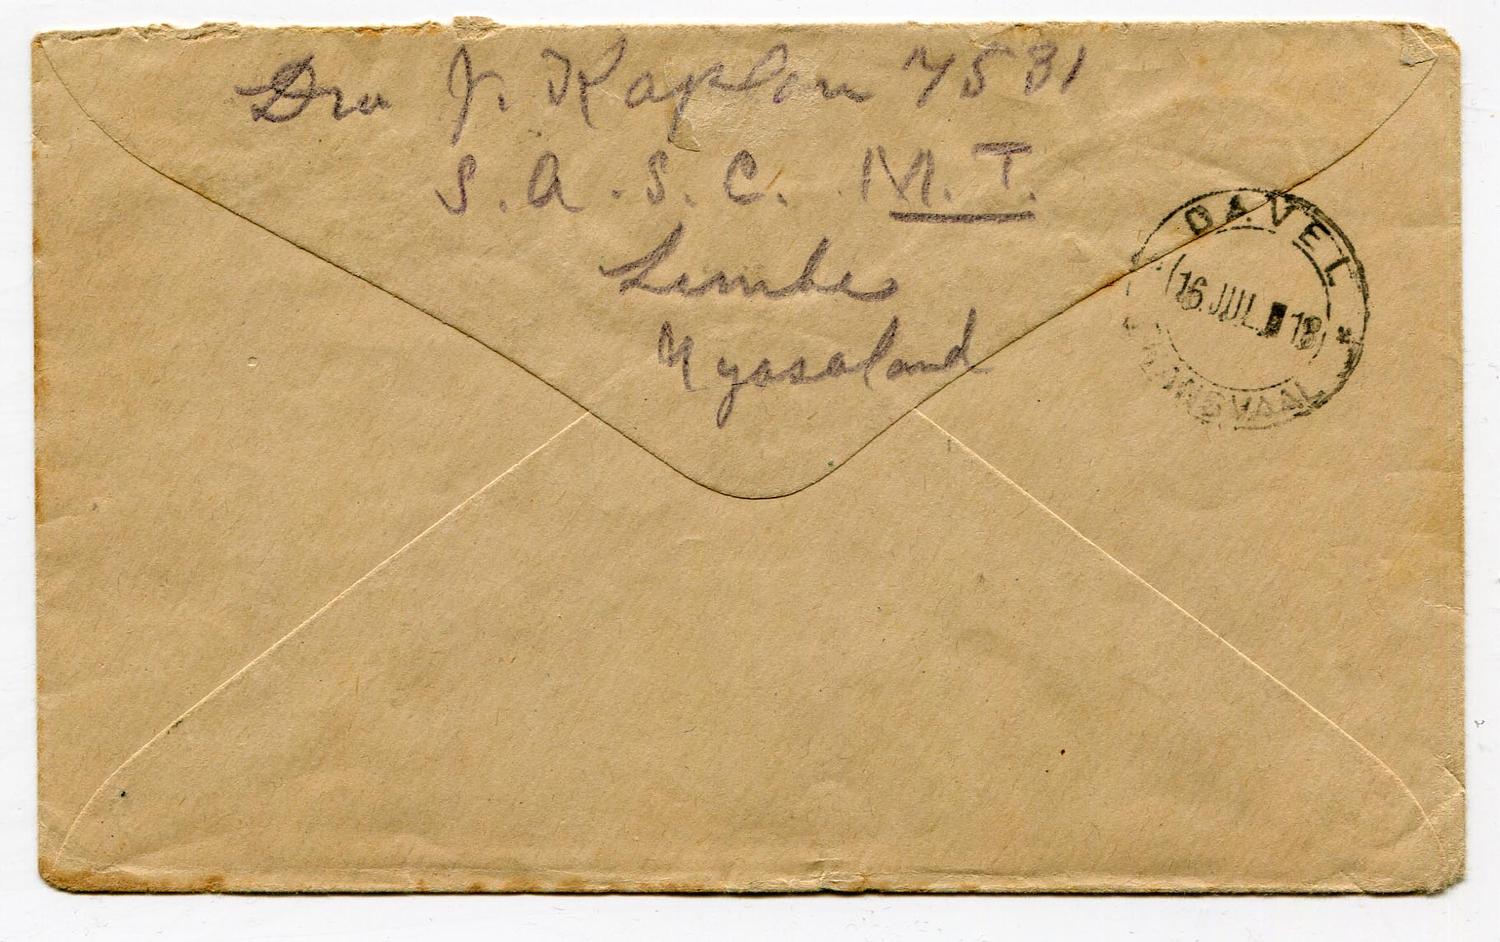 Dvr J. Kaplan 7531
S.A.S.C. M.T.
Limbe
Nyasaland
DAVEL
16 JUL 18
TRANSVAAL